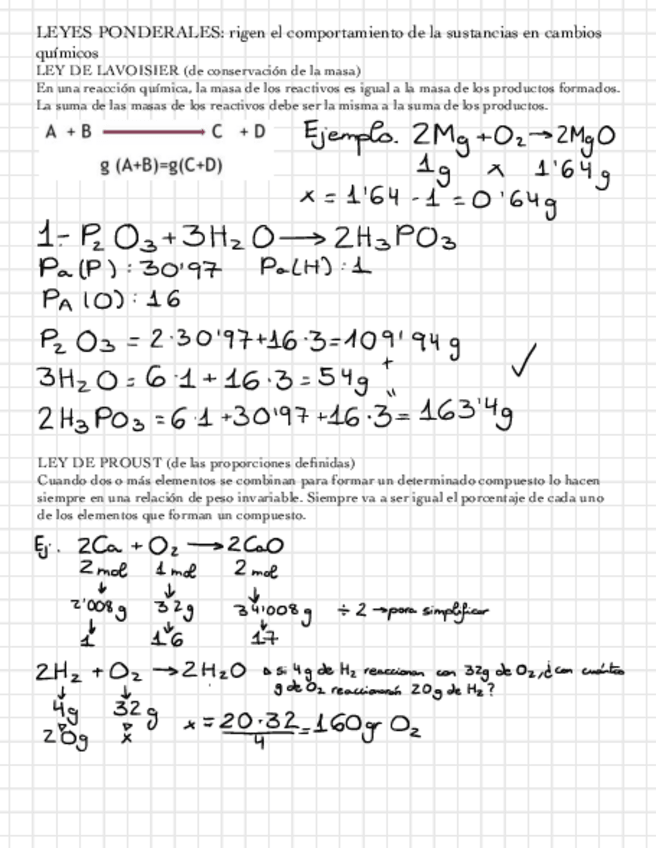 LEYES PONDERALES: rigen el comportamiento de la sustancias en cambios
químicos
LEY DE LAVOISIER (de conservación de la masa)
En una reacción química, la masa de los reactivos es igual a la masa de los productos formados.
La suma de las masas de los reactivos debe ser la misma a la suma de los productos.
A + B ⟶ C + D
g (A+B)=g(C+D)
Ejemplo. 2Mg + O₂ → 2MgO
1g x 1'64g
x = 1'64 - 1 = 0'64g
1- P₂O₃ + 3H₂O ⟶ 2H₃PO₃
Pa(P): 30'97 Pa(H): 1
PA(O): 16
P₂O₃ = 2·30'97+16·3=109'94g
+
3H₂O = 6·1 + 16·3 = 54g ✓
"
2H₃PO₃ = 6·1 +30'97 +16·3 = 163'4g
LEY DE PROUST (de las proporciones definidas)
Cuando dos o más elementos se combinan para formar un determinado compuesto lo hacen
siempre en una relación de peso invariable. Siempre va a ser igual el porcentaje de cada uno
de los elementos que forman un compuesto.
Ej. 2Ca + O₂ ⟶ 2CaO
2mol 1mol 2mol
↓ ↓ ↓
2'008g 32g 34'008g ÷ 2 → para simplificar
↓ ↓ ↓
1 16 17
2H₂ + O₂ → 2H₂O si 4g de H₂ reaccionan con 32g de O₂, ¿con cuántos
g de O₂ reaccionarán 20g de H₂?
↓ ↓
4g 32g x = 20·32/4 = 160gr O₂
20g x